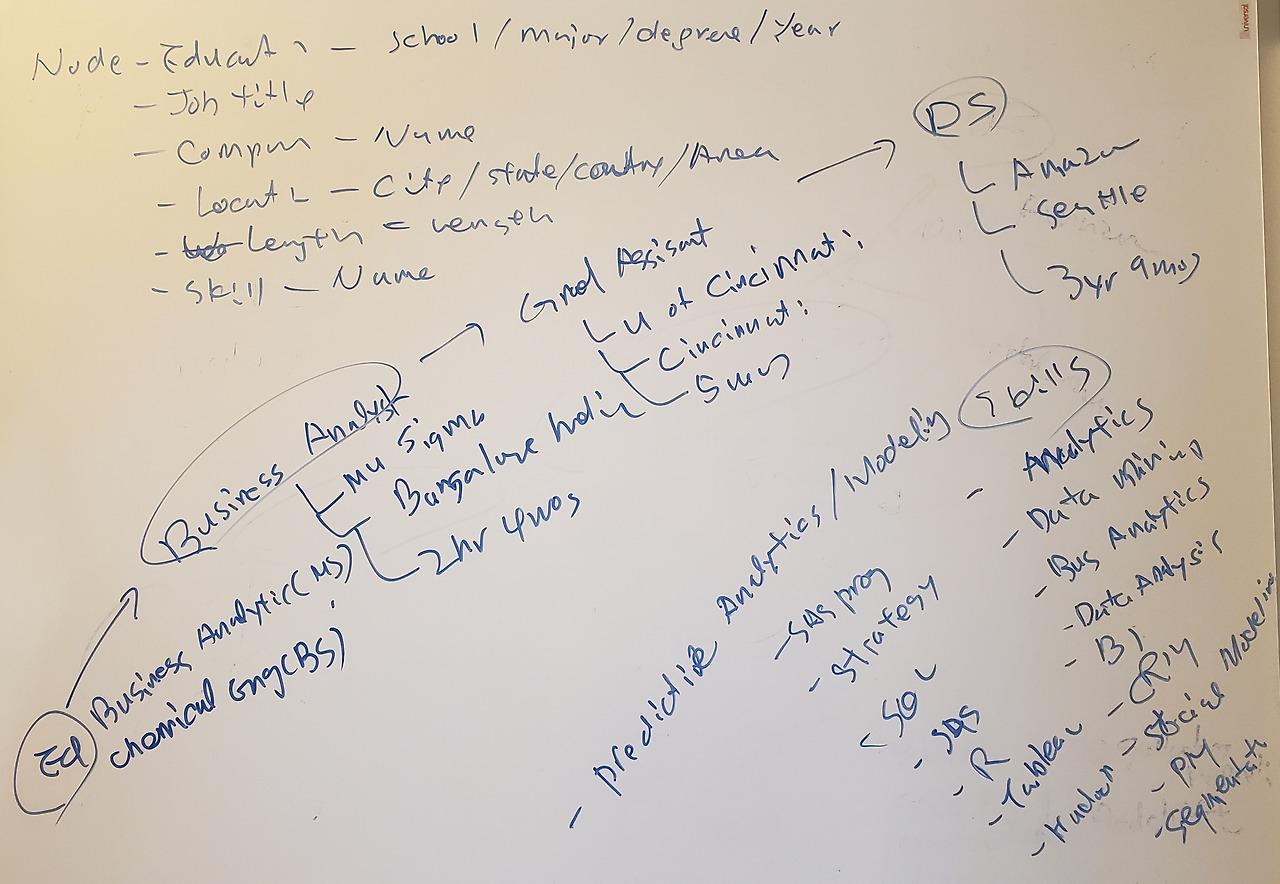 Node - Educat - school / major / degree / Year
- Job title
- Compan - Name
- Locat - City / state / country / Area
- Length = Length
- Skill - Name
DS
Amazon
Seattle
3yr 9mos
Grad Assisant
U of Cincinnati
Cincinnati
5mos
Business Analyst
Mu Sigma
Bangalore India
2yr 4mos
Ed
Business Analytic (MS)
chemical Eng (BS)
Skills
- Analytics
- Data Mining
- Bus Analytics
- Data Analysis
- BI
- CRM
- Modeling
- PM
- Segmentat
- Predictive Analytics / Modeling
- SAS prog
- Strategy
- SQL
- SAS
- R
- Tableau
- Hadoop
universal